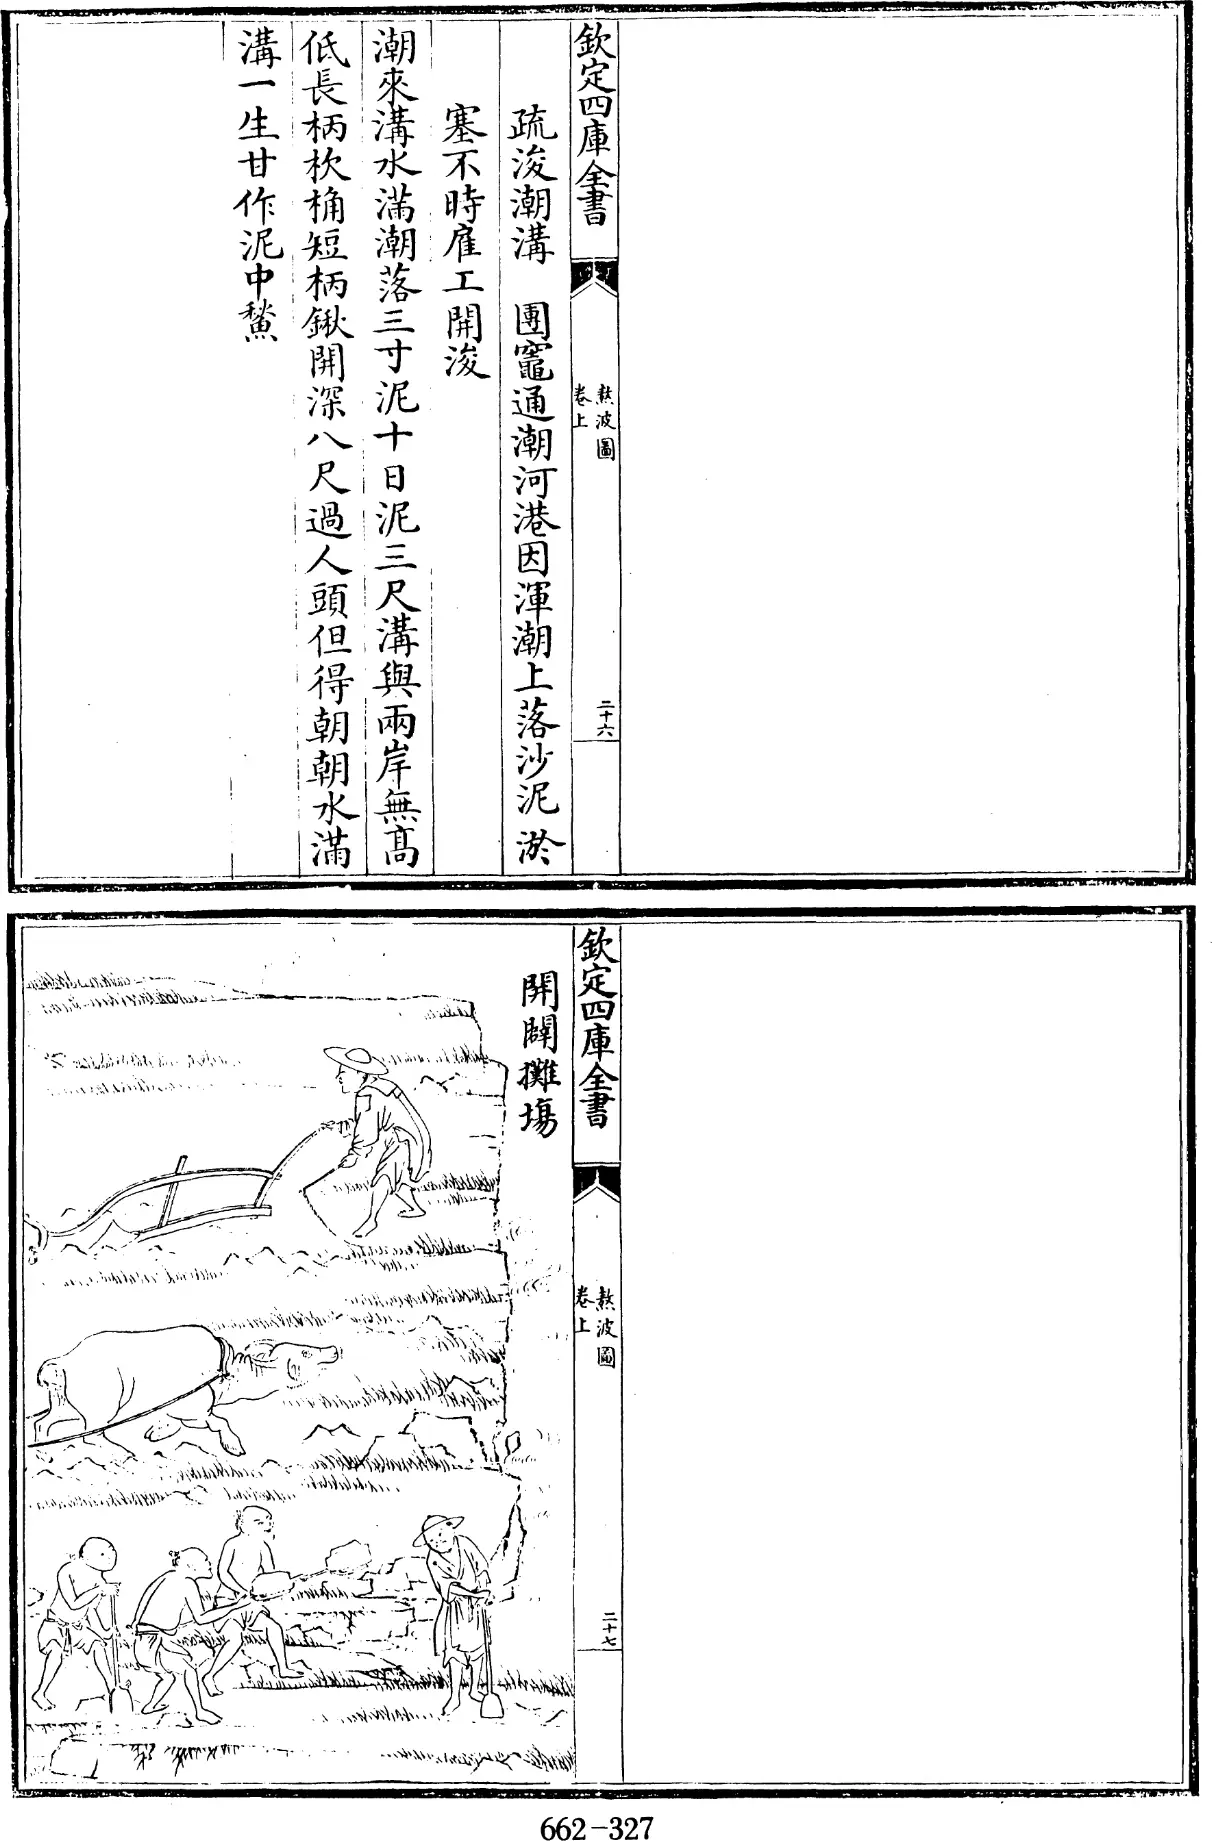 欽定四庫全書
熬波圖
卷上
二十六
疏浚潮溝　團竈通潮河港因渾潮上落沙泥淤
塞不時雇工開浚
潮來溝水滿潮落三寸泥十日泥三尺溝與兩岸無髙
低長柄杴桷短柄鍬開深八尺過人頭但得朝朝水滿
溝一生甘作泥中鰲
欽定四庫全書
熬波圖
卷上
二十七
開闢攤場
662-327